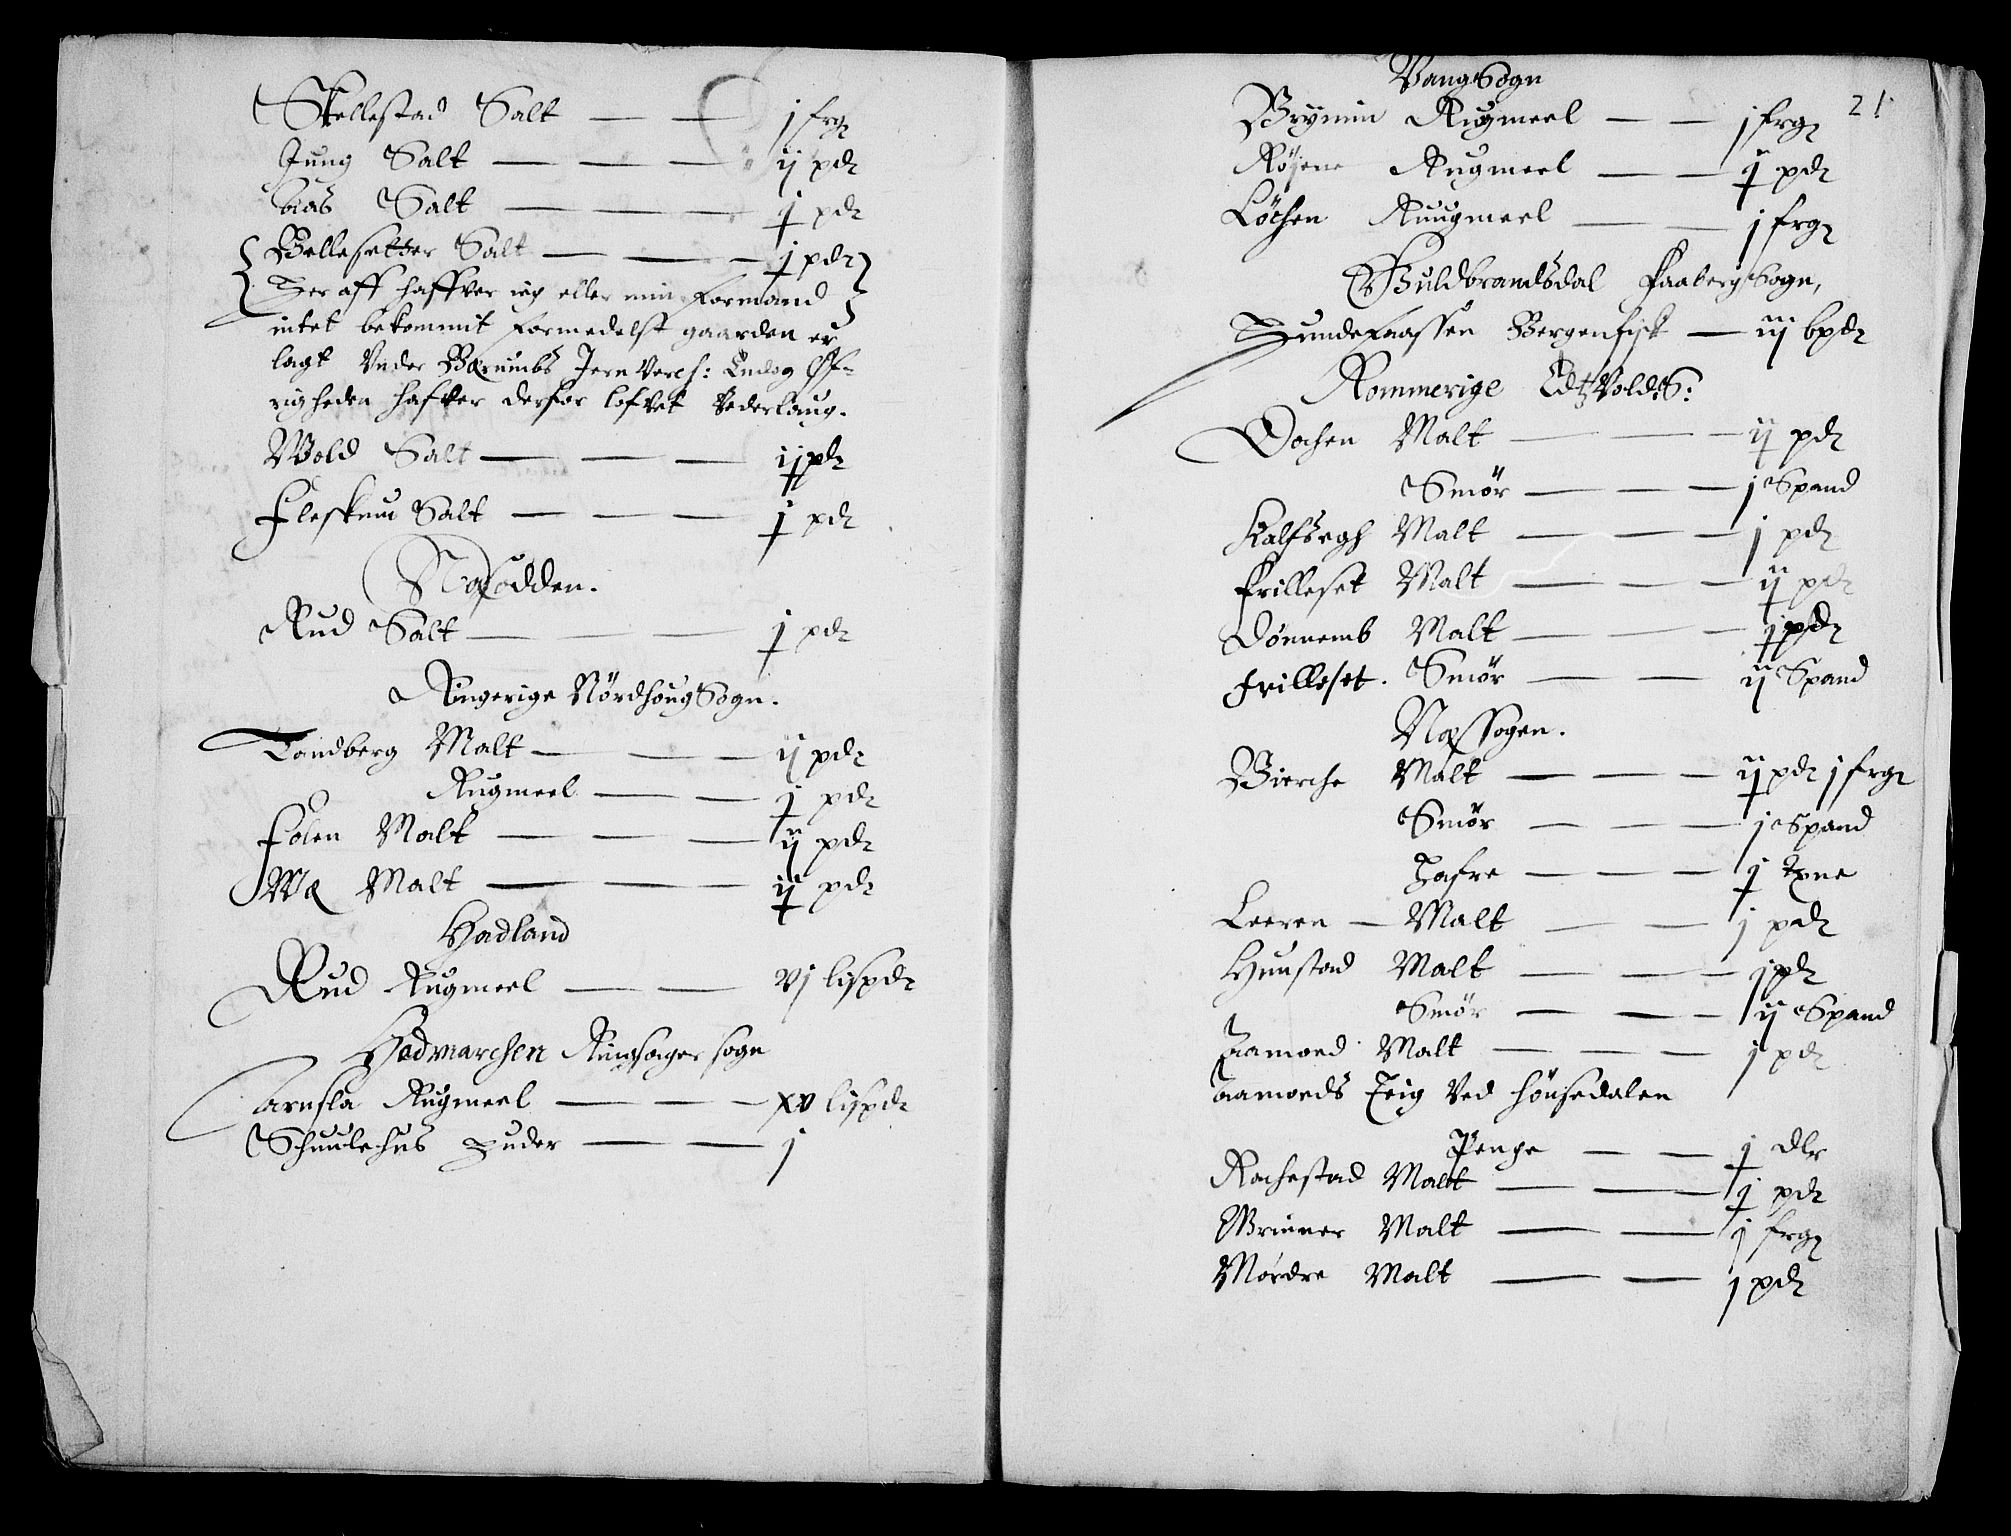 Skellestad Salt — — j frg
Jung Salt — — — ij pd
bias Salt — — — j pd
Bellesetter Salt — — — j pd
Her aff haffver ieg eller min Formand
intet bekommit formedelst gaarden er
lagt Vnder Bærumbs Jern Verch: Endog Øf-
righeden hafver derfor lofvet Vederlaug.
Wold Salt — — — ij pd
Fleskum Salt — — — j pd
Næsodden.
Rud Salt — — — j pd
Ringerige Nordhoug Sogn.
Tandberg Malt — — — ij pd
Rugmeel — — j pd
Folen Malt — — — ij pd
Malt — — — ij pd
Hadland
Rud Rugmeel — — vj lispd
Hedmarchen Ringsager sogn
Arnsla Rugmeel — — xv lispd
Schuulehus huder — — j
21
Vang Sogn
Brynnin Rugmeel — — j frg
Røsene Rugmeel — — j pd
Løchen Ruugmeel — — j frg
Guldbrandsdal Faaberg Sogn,
Hundefnassen Bergenfisk — iij bpd
Rommerige Edtz Vold S:
Dochen Malt — — — ij pd
Smör — — j Spand
Kalsbegh Malt — — — j pd
Frilleset Malt — — — ij pd
Dønnemb Malt — — — j pd
Frilleset. Smör — — ij Spand
Næssogen.
Bierche Malt — — — ij pd j frg
Smör — — — j Spand
Hafre — — — j tønne
Leeren — Malt — — j pd
Hunstad Malt — — — j pd
Smör — — — ij Spand
Aamoed Malt — — — j pd
Aamoeds Teig Ved Hönsedalen
Penge — — j dlr
Rachestad Malt — — — j pd
Brinner Malt — — j frg
Mørdre Malt — — j pd